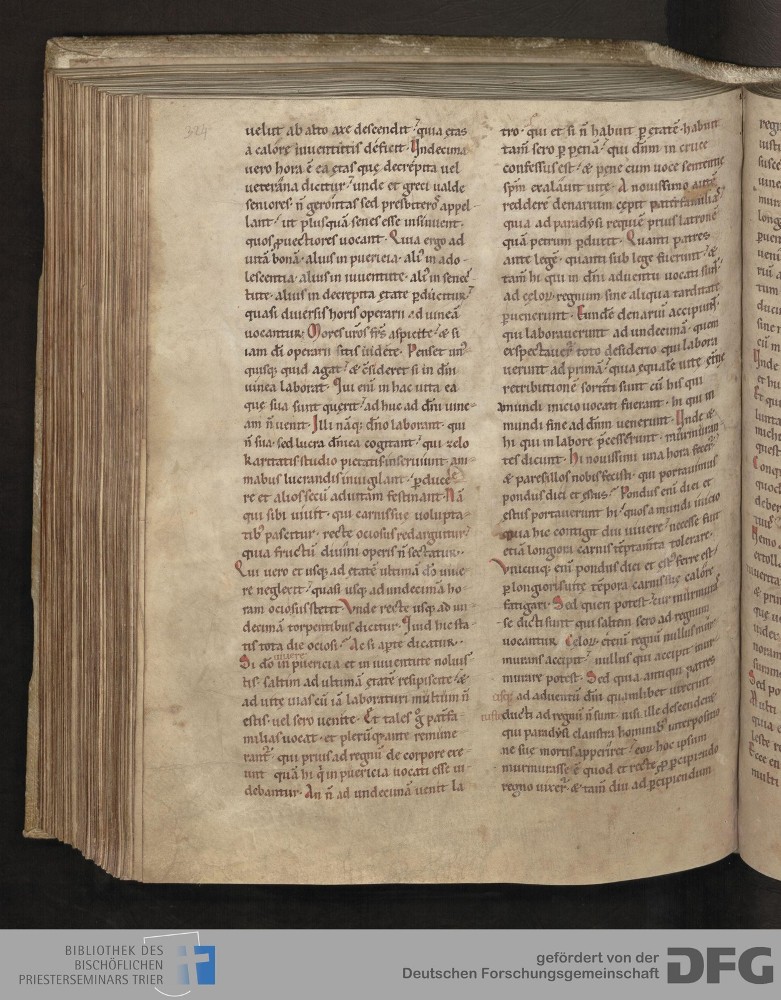 324
uelut ab alto axe descendit. quia ętas
a calore iuuentutis deficit. Undecima
uero hora ē ea ętas quę decrepita uel
ueterana dicitur. unde et greci ualde
seniores. n̄ gerontas sed presbiteros appel-
lant. ut plus quā senes esse insinuent.
quos ꝓuectiores uocant. Quia ergo ad
uitā bonā. alius in puericia. aliꝰ in ado-
lescentia. alius in iuuentute. aliꝰ in senec-
tute. alius in decrepita ętate ꝑducitur.
quasi diuersis horis operarii ad uineā
uocantur. Mores uros frs aspicite. & si
iam di operarii sitis uidete. Penset unꝰ
quisq; quid agat. & c̄sideret si in dni
uinea laborat. Qui eni in hac uita ea
quę sua sunt querit. ad huc ad dni uine-
am n̄ uenit. Illi nāq; dno laborant. qui
n̄ sua. sed lucra dnica cogitant. qui zelo
karitatis studio pietatis inseruiunt. ani-
mabus lucrandis inuigilant. ꝑduce-
re et alios secū ad uitam festinant. Nā
qui sibi uiuit. qui carnis suę uolupta-
tibꝰ pascitur. recte ociosus redarguitur.
quia fructū diuini operis n̄ sectatur.
Qui uero et usq; ad etatē ultimā do uiue-
re neglexit. quasi usq; ad undecimā ho-
ram ociosus stetit. Vnde recte usq; ad un-
decimā torpentibus dicitur. Quid hic sta-
tis tota die ociosi. Ac si aꝑte dicatur.
uiuere
Si do in puericia et in iuuentute noluis-
tis. saltim ad ultimā ętatē resipiscite. &
ad uitę uias cū iā laboraturi multum n̄
estis. uel sero uenite. Et tales g patfa-
milias uocat. et plerūq; ante remune-
rant. qui prius ad regnū de corpore exe-
unt quā hi q in puericia uocati esse ui-
debantur. An n̄ ad undecimā uenit la
tro. qui et si n̄ habuit ꝑ ętatē. habuit
tam sero ꝑ penā. qui dnm in cruce
confessus est. & pene cum uoce sententie
spm exalauit uitę. A nouissimo autē
reddere denarium cepit paterfamilias.
quia ad paradysi requiē prius latronē
quā petrum ꝑduxit. Quanti patres
ante legē. quanti sub lege fuerunt. &
tam hi qui in dni aduentu uocati sunt.
ad cęlorꝝ regnum sine aliqua tarditate
ꝑuenerunt. Eundē denariū accipiunt
qui laborauerunt ad undecimā. quem
exspectauerꝰ toto desiderio qui labora
uerunt ad primā. quia equalē uitę etnę
retributionē sortiti sunt cū his qui
a mundi inicio uocati fuerant. hi qui in
mundi fine ad dnm uenerunt. Unde &
hi qui in labore p̄cesserunt. murmuran-
tes dicunt. Hi nouissimi una hora fecerꝰ.
& pares illos nobis fecisti. qui portauimus
pondus diei et ęstus. Pondus eni diei et
ęstus portauerunt hi. quos a mundi inicio
quia hic contigit diu uiuere. necesse fuit
etiā longiora carnis tēptamta tolerare.
Vnicuiq; eni pondus diei et ęstꝰ ferre est.
ꝑ longioris uitę tēpora carnis suę calore
fatigari. Sed queri potest. cur murmuras-
se dicti sunt qui saltem sero ad regnum
uocantur. Cęlorꝝ eteni regnū nullus mur-
murans accipit. nullus qui accipit mur-
murare potest. Sed quia antiqui patres
usq; ad aduentū dni quamlibet uixerint
iuste ducti ad regnū n̄ sunt. nisi ille descenderet
qui paradysi claustra hominibꝰ interpositio
ne suę mortis apperiret. eorꝝ hoc ipsum
murmurasse ē quod et recte ꝓ ꝑcipiendo
regno uixerꝰ. & tam diu ad ꝑcipiendum
BIBLIOTHEK DES
BISCHÖFLICHEN
PRIESTERSEMINARS TRIER
gefördert von der
Deutschen Forschungsgemeinschaft
DFG